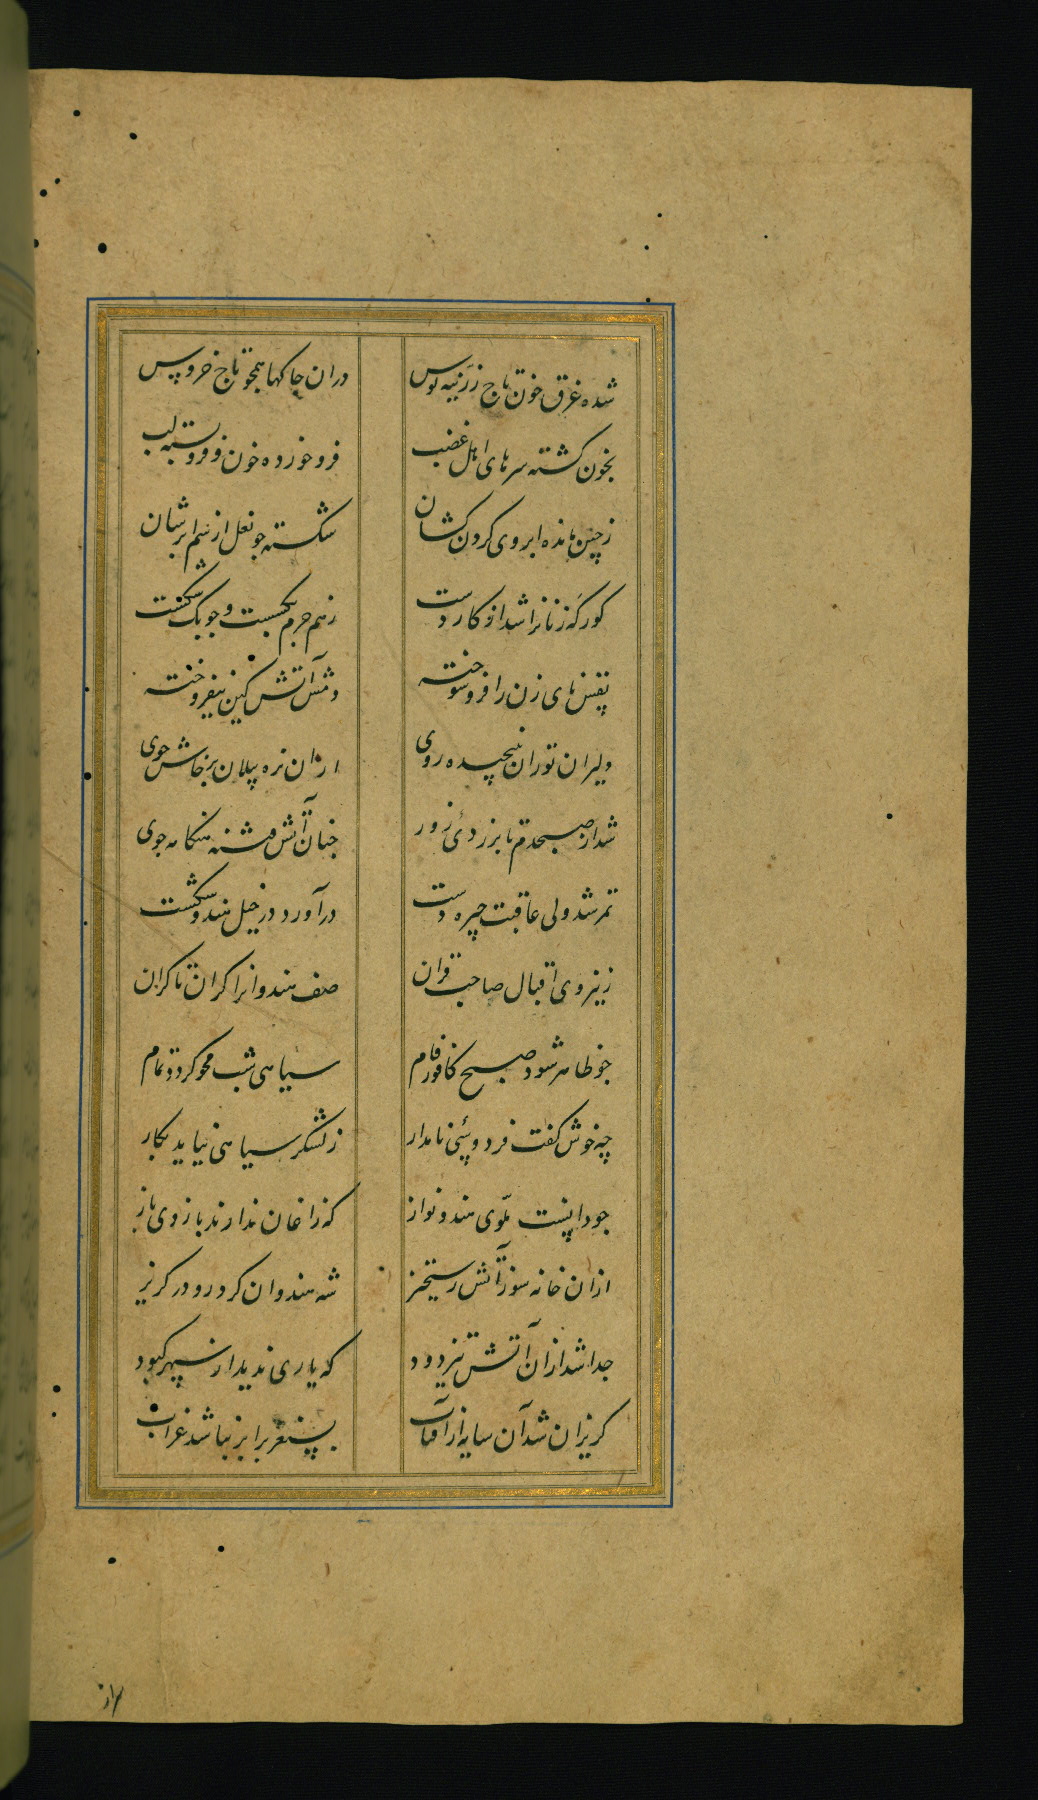 شده غرق خون تاج زرینه کوس دران جاکها همچو تاج خروس
بخون کشته سرهای اهل غضب فرو خورده خون و فروبسته لب
ز چین مانده ابروی کردن کشان شکسته جو نعل از سم ابرشان
کورکه زنانرا شد از کار دست زهم جرم بکسست و جوبک شکست
نفس های زن را فرو سوخته دمش آتش کین بیفروخته
دلیران توران نپیچیده روی ازان نره پیلان پرخاش جوی
شد از صبحدم تا بزردئ روز جنان آتش فتنه هنکامه جوی
تمر شد ولی عاقبت چیره دست درآورد در خیل هندو شکست
ز نیروی اقبال صاحب قران صف هندوانرا کران تا کران
جو ظاهر شود صبح کافور فام سیاهی شب محو کردد تمام
چه خوش کفت فردوسئ نامدار ز لشکر سیاهی نیاید بکار
جو دانست ملوی هندو نواز که زاغان ندارند بازوی باز
ازان خانه سوز آتش رستخیز شه هندوان کرد رو در کریز
جدا شد ازان آتش تیز دود که یاری ندید از سپهر کبود
کریزان شد آن سایه از آفتاب بسنقر برابر نباشد غراب